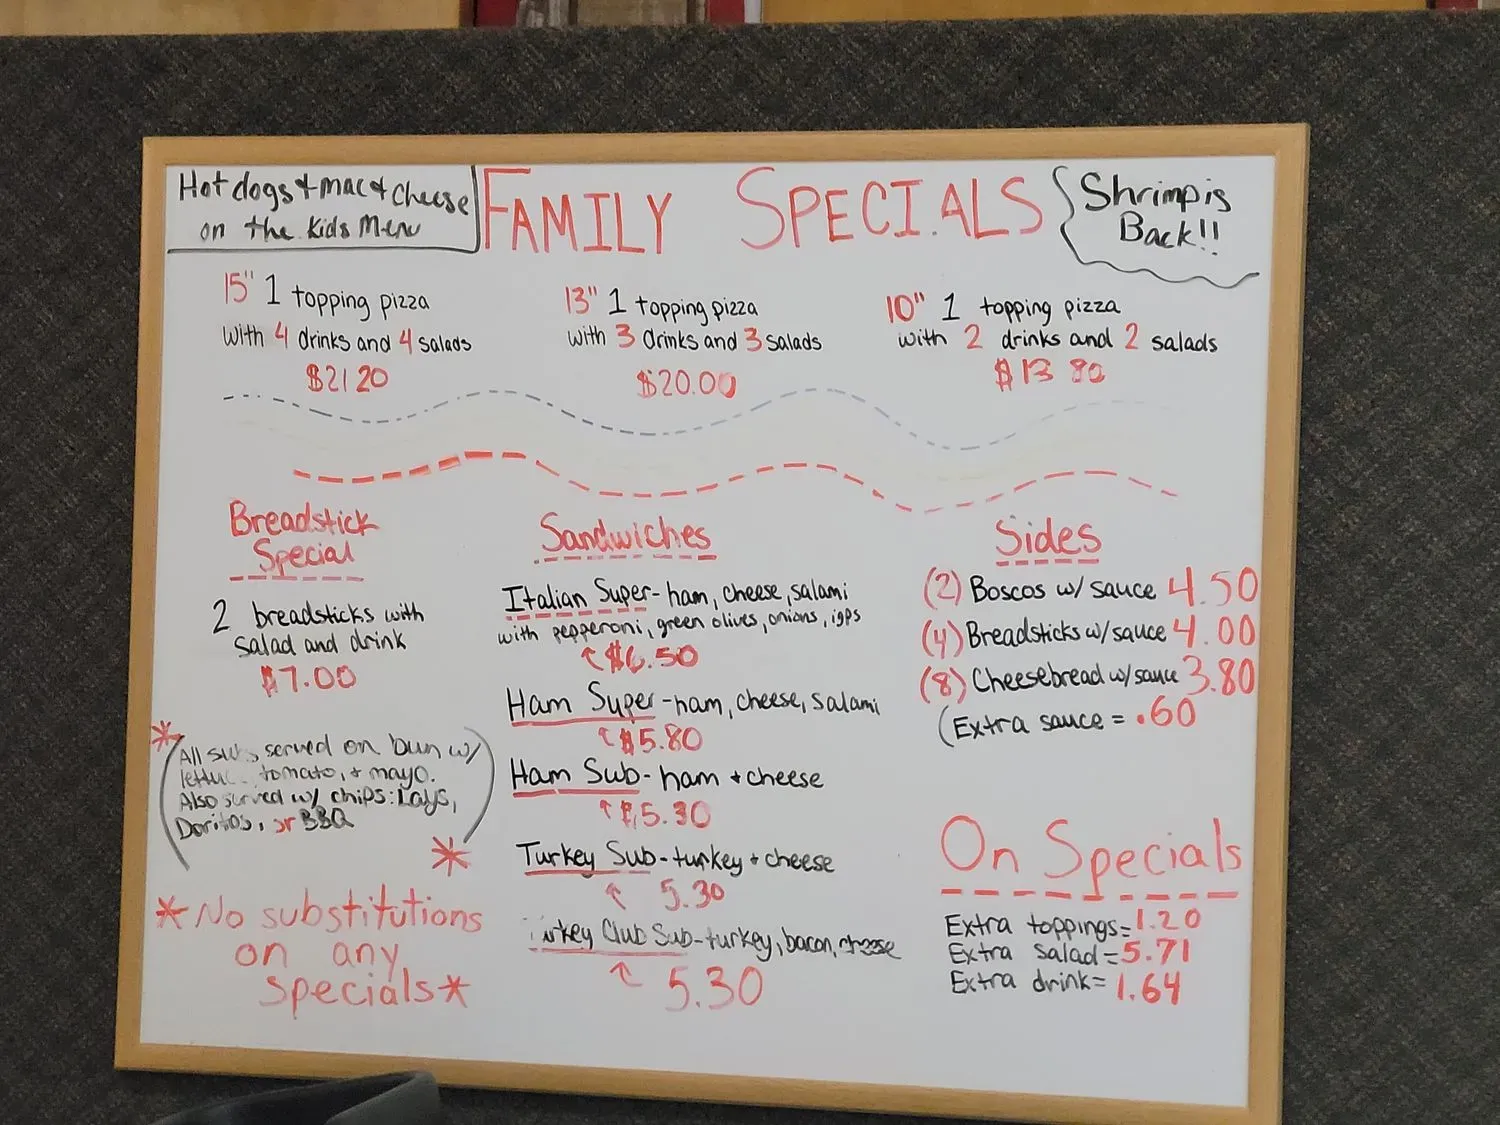 Hot dogs + mac + cheese
on the kids Menu
FAMILY SPECIALS
Shrimp is
Back!!
15" 1 topping pizza
with 4 drinks and 4 salads
$21 20
13" 1 topping pizza
with 3 drinks and 3 salads
$20.00
10" 1 topping pizza
with 2 drinks and 2 salads
$13 80
Breadstick
Special
2 breadsticks with
salad and drink
$7.00
*
(All subs served on bun w/
lettuce tomato, + mayo.
Also served w/ chips: Lays,
Doritos, or BBQ)
*
*No substitutions
on any
specials*
Sandwiches
Italian Super- ham, cheese, salami
with pepperoni, green olives, onions,
$6.50
Ham Super - ham, cheese, salami
$5.80
Ham Sub- ham + cheese
$5.30
Turkey Sub - turkey + cheese
5.30
Turkey Club Sub - turkey, bacon, cheese
5.30
Sides
(2) Boscos w/ sauce 4.50
(4) Breadsticks w/ sauce 4.00
(8) Cheesebread w/ sauce 3.80
(Extra sauce = .60
On Specials
Extra toppings = 1.20
Extra salad = 5.71
Extra drink = 1.64